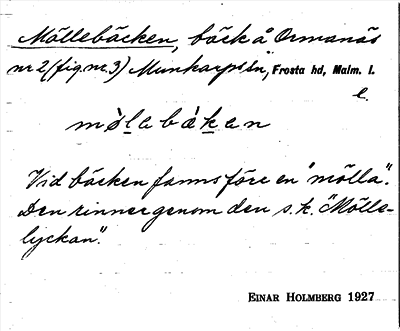 Möllebäcken, bäck å Ormanäs
nr 2 (fig. nr. 3) Munkarps sn, Frosta hd, Malm. l.
e.
Vid bäcken fanns före en "mölla".
Den rinner genom den s.k. "Mölle-
lyckan".
EINAR HOLMBERG 1927